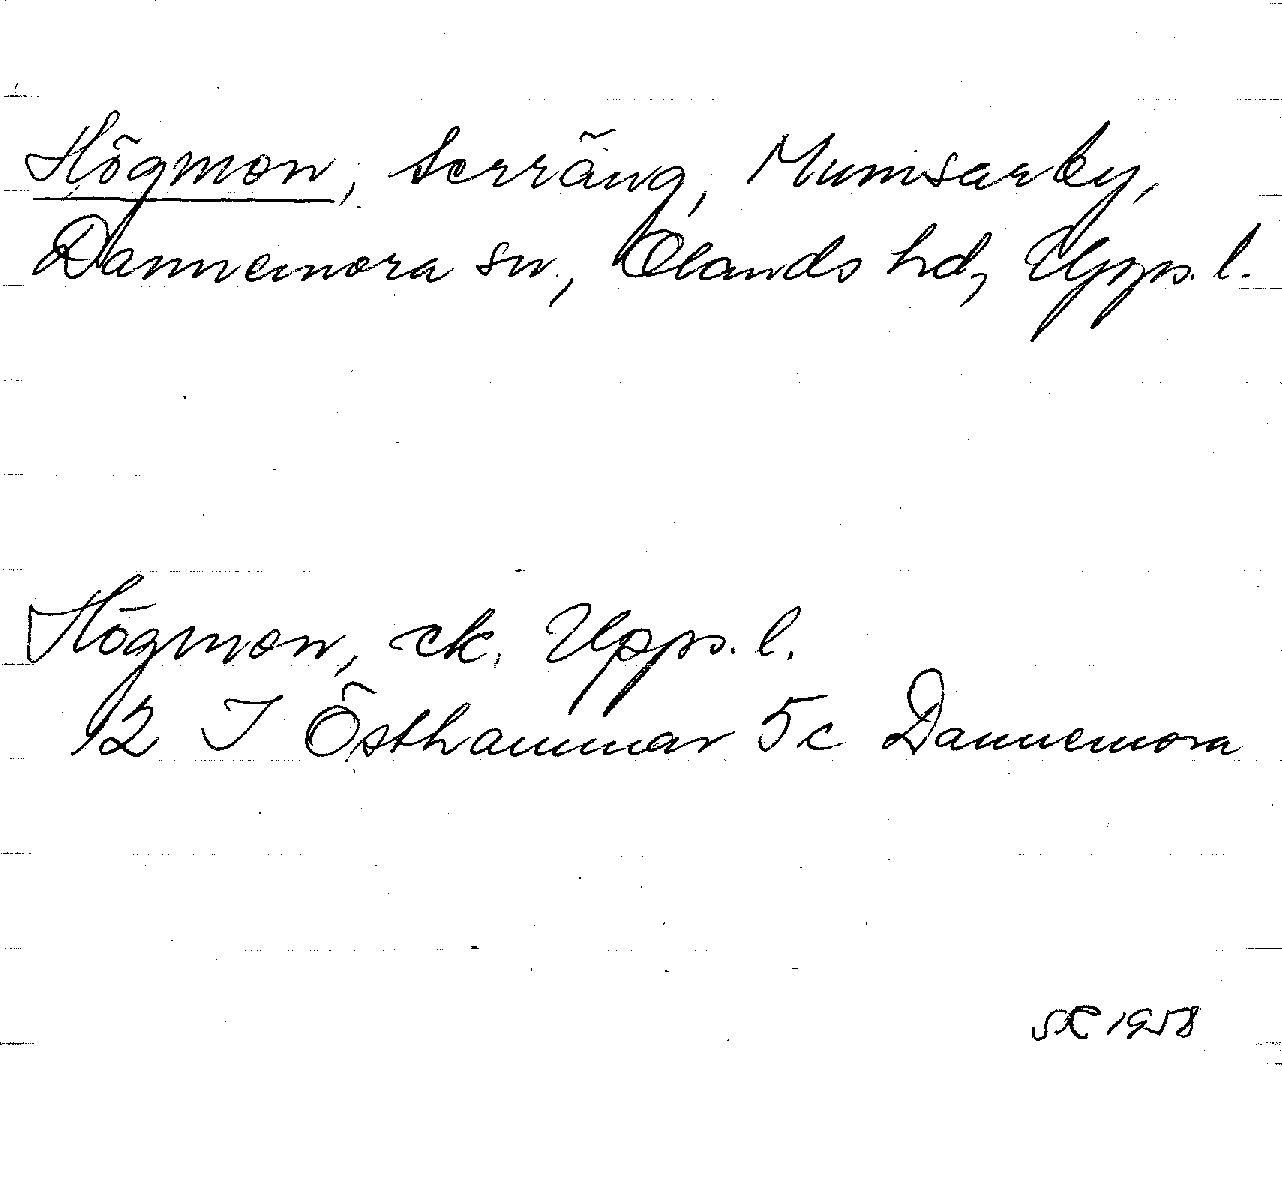 Högmon, terräng, Mumsarby,
Dannemora sn, Olands hd, Upps. l.
Högmon, ek. Upps. l.
12 I Östhammar 5c Dannemora
1958